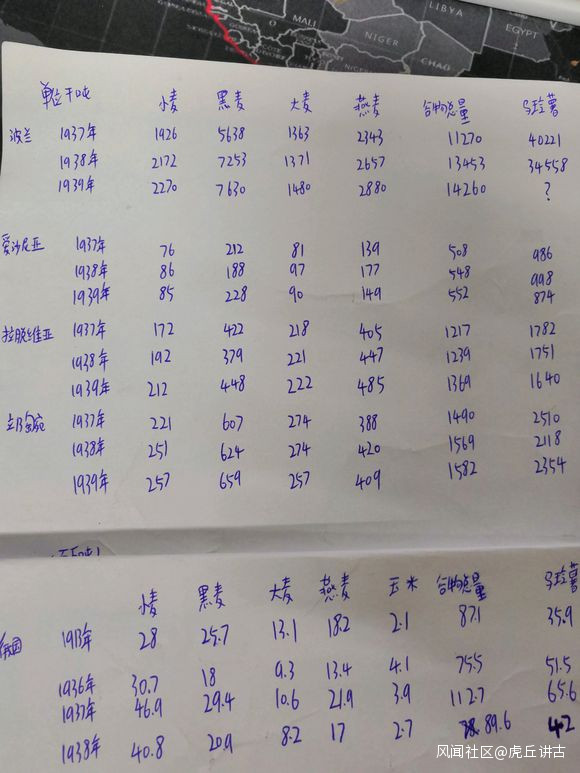 LIBYA
EGYPT
MALI
NIGER
CHAD
单位千吨
小麦 黑麦 大麦 燕麦 谷物总量 马玲薯
波兰 1937年 1926 5638 1363 2343 11270 40221
1938年 2172 7253 1371 2657 13453 34558
1939年 2270 7630 1480 2880 14260 ?
爱沙尼亚 1937年 76 212 81 139 508 986
1938年 86 188 97 177 548 998
1939年 85 228 90 149 552 874
拉脱维亚 1937年 172 422 218 405 1217 1782
1938年 192 379 221 447 1239 1751
1939年 212 448 222 485 1369 1640
立陶宛 1937年 221 607 274 388 1490 2510
1938年 251 624 274 420 1569 2118
1939年 257 659 257 409 1582 2354
小麦 黑麦 大麦 燕麦 玉米 谷物总量 马玲薯
俄国 1913年 28 25.7 13.1 18.2 2.1 87.1 35.9
1936年 30.7 18 9.3 13.4 4.1 75.5 51.5
1937年 46.9 29.4 10.6 21.9 3.9 112.7 65.6
1938年 40.8 20.9 8.2 17 2.7 89.6 42
风闻社区@虎丘讲古